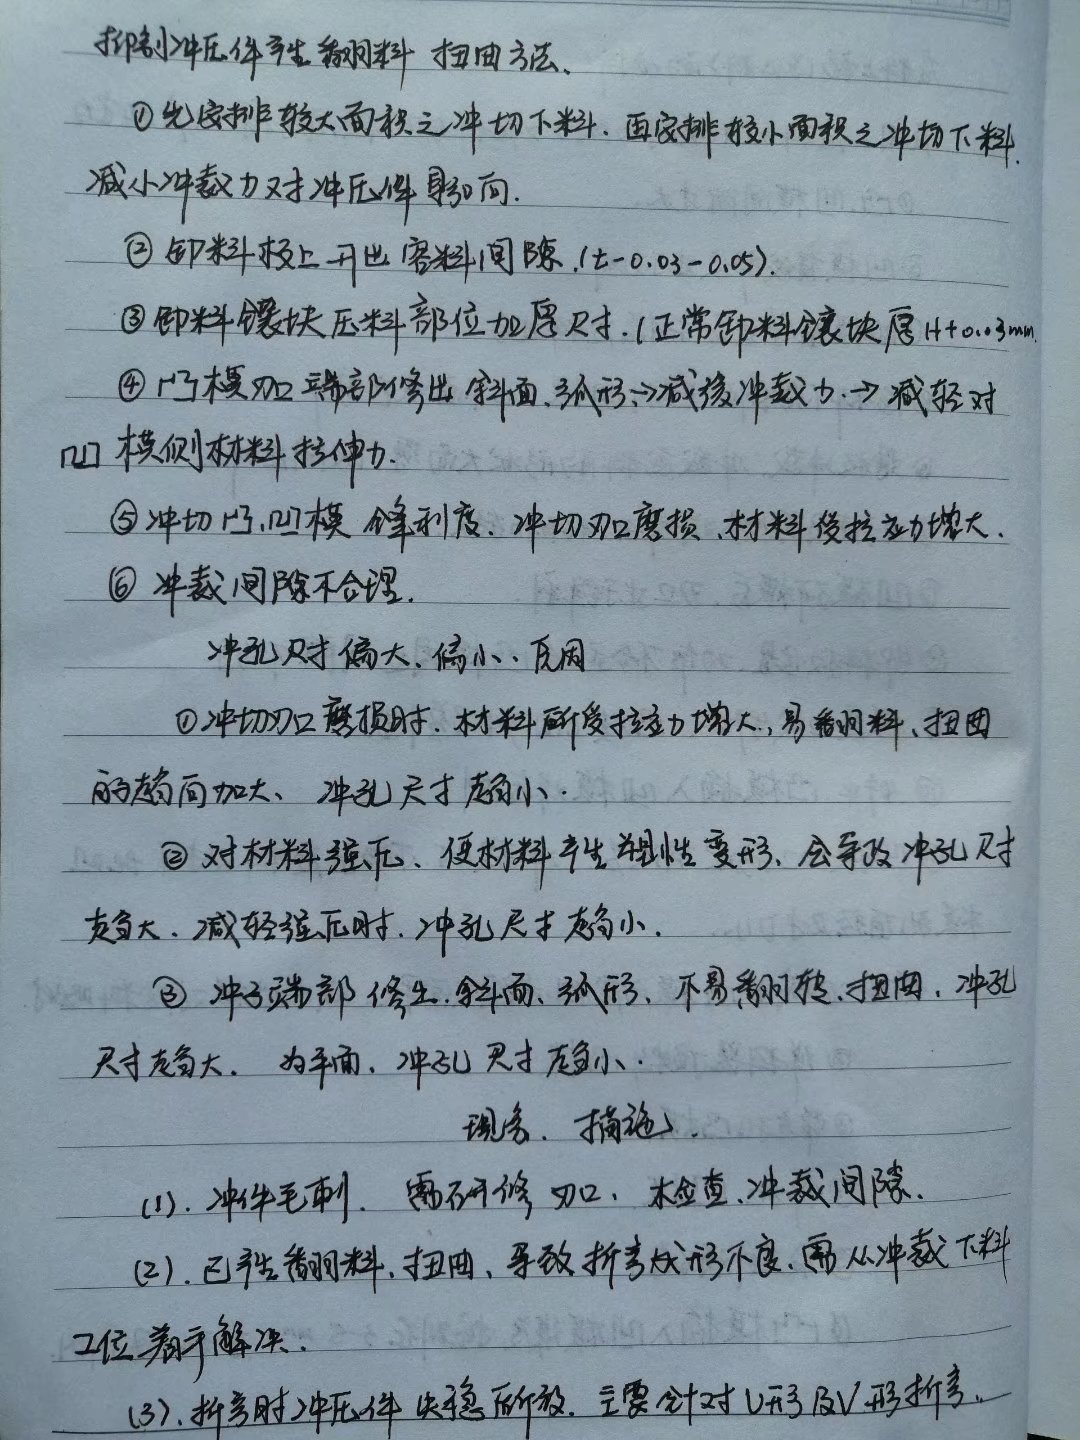 抑制冲压件产生翻料扭曲方法、
①先安排较大面积之冲切下料、再安排较小面积之冲切下料、
减小冲裁力对冲压件影响.
②卸料板上开出容料间隙.(t-0.03-0.05).
③卸料镶块压料部位加厚尺寸.(正常卸料镶块厚H+0.03mm.
④凸模刃口端部修出斜面、弧形→减缓冲裁力.→减轻对
凹模侧材料拉伸力.
⑤冲切凸、凹模锋利度、冲切刃口磨损、材料受拉应力增大.
⑥冲裁间隙不合理.
冲孔尺寸偏大、偏小、原因
①冲切刃口磨损时、材料所受拉应力增大,易翻料、扭曲
的趋向加大、冲孔尺寸趋小.
②对材料强压、使材料产生塑性变形、会导致冲孔尺寸
趋大、减轻强压时、冲孔尺寸趋小.
③冲子端部修出斜面、弧形、不易翻转、扭曲、冲孔
尺寸趋大. 为平面、冲孔尺寸趋小.
现象、措施.
(1).冲件毛刺. 需研修刃口、检查、冲裁间隙.
(2).已产生翻料、扭曲、导致折弯成形不良、需从冲裁下料
工位着手解决.
(3).折弯时冲压件失稳所致. 主要针对U形及V形折弯.